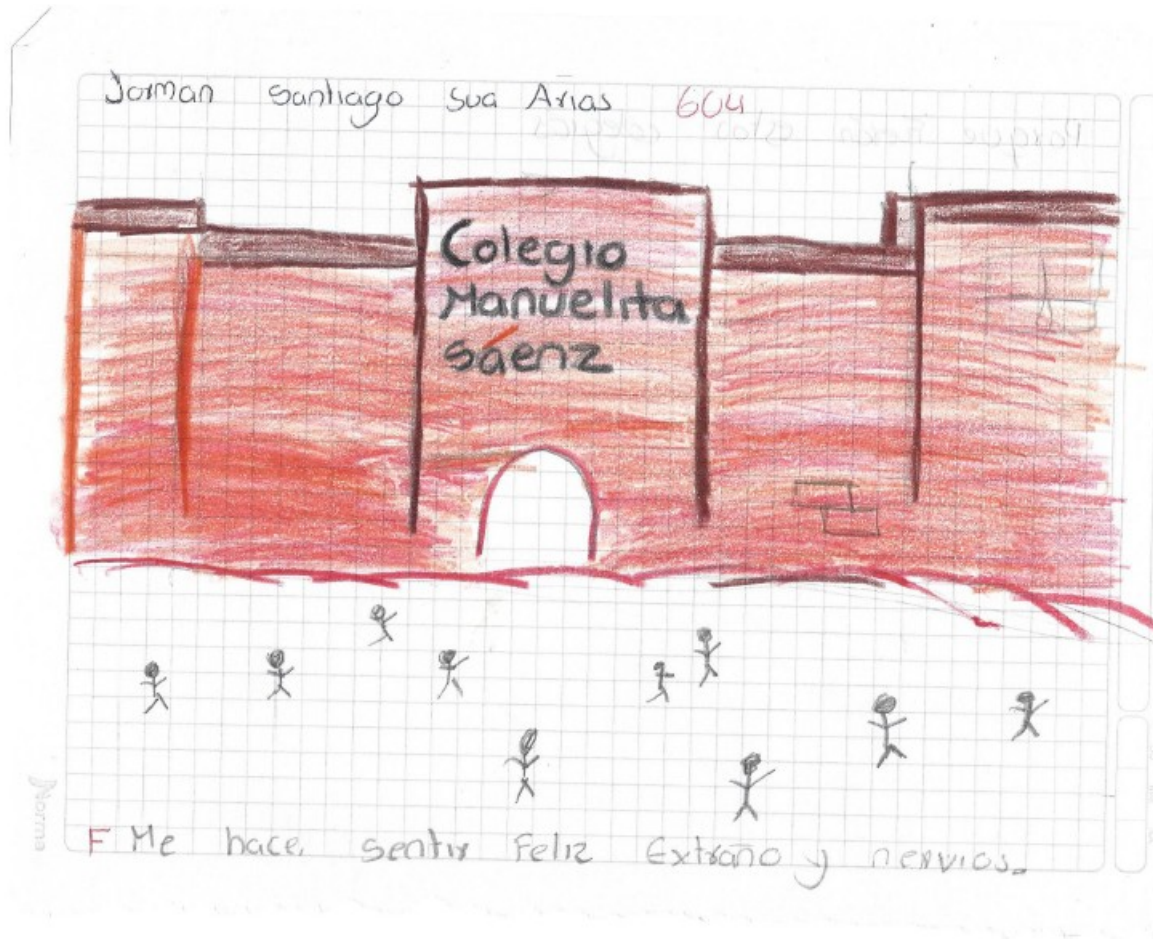 Jorman Santiago Sua Arias 604
Colegio
Manuelita
Sáenz
F Me hace sentir Feliz Extraño y nervios.
Norma